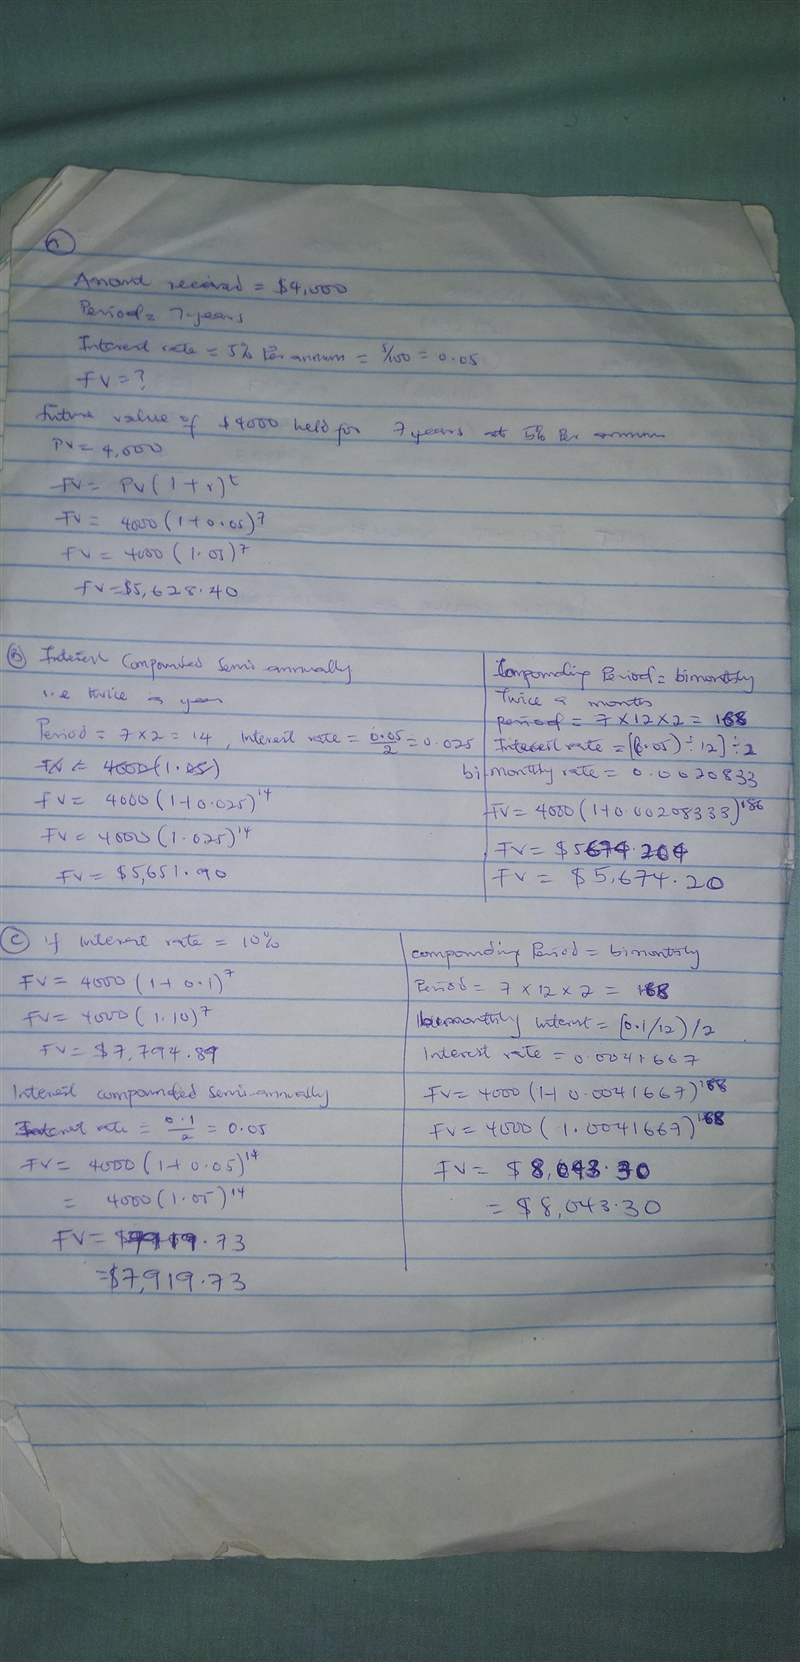 A
Amount received = $4,000
Period = 7 years
Interest rate = 5% Per annum = 5/100 = 0.05
FV = ?
Future value of $4000 held for 7 years at 5% Per annum
PV = 4,000
FV = PV(1+r)^t
FV = 4000(1+0.05)^7
FV = 4000(1.05)^7
FV = $5,628.40
B Interest Compounded Semi annually
i.e twice a year
Period = 7 x 2 = 14, Interest rate = 0.05/2 = 0.025
FV = 4000(1.05)
FV = 4000(1+0.025)^14
FV = 4000(1.025)^14
FV = $5,651.90
Compounding Period = bimonthly
Twice a months
period = 7 x 12 x 2 = 168
Interest rate = [(0.05) ÷ 12] ÷ 2
bi-monthly rate = 0.0020833
FV = 4000(1+0.00208333)^186
FV = $5674.204
FV = $5,674.20
C if interest rate = 10%
FV = 4000(1+0.1)^7
FV = 4000(1.10)^7
FV = $7,794.89
Interest compounded Semi-annually
Interest rate = 0.1/2 = 0.05
FV = 4000(1+0.05)^14
= 4000(1.05)^14
FV = $7919.73
= $7,919.73
compounding Period = bimonthly
Period = 7 x 12 x 2 = 168
bimonthly interest = (0.1/12)/2
Interest rate = 0.0041667
FV = 4000(1+0.0041667)^168
FV = 4000(1.0041667)^168
FV = $8,043.30
= $8,043.30